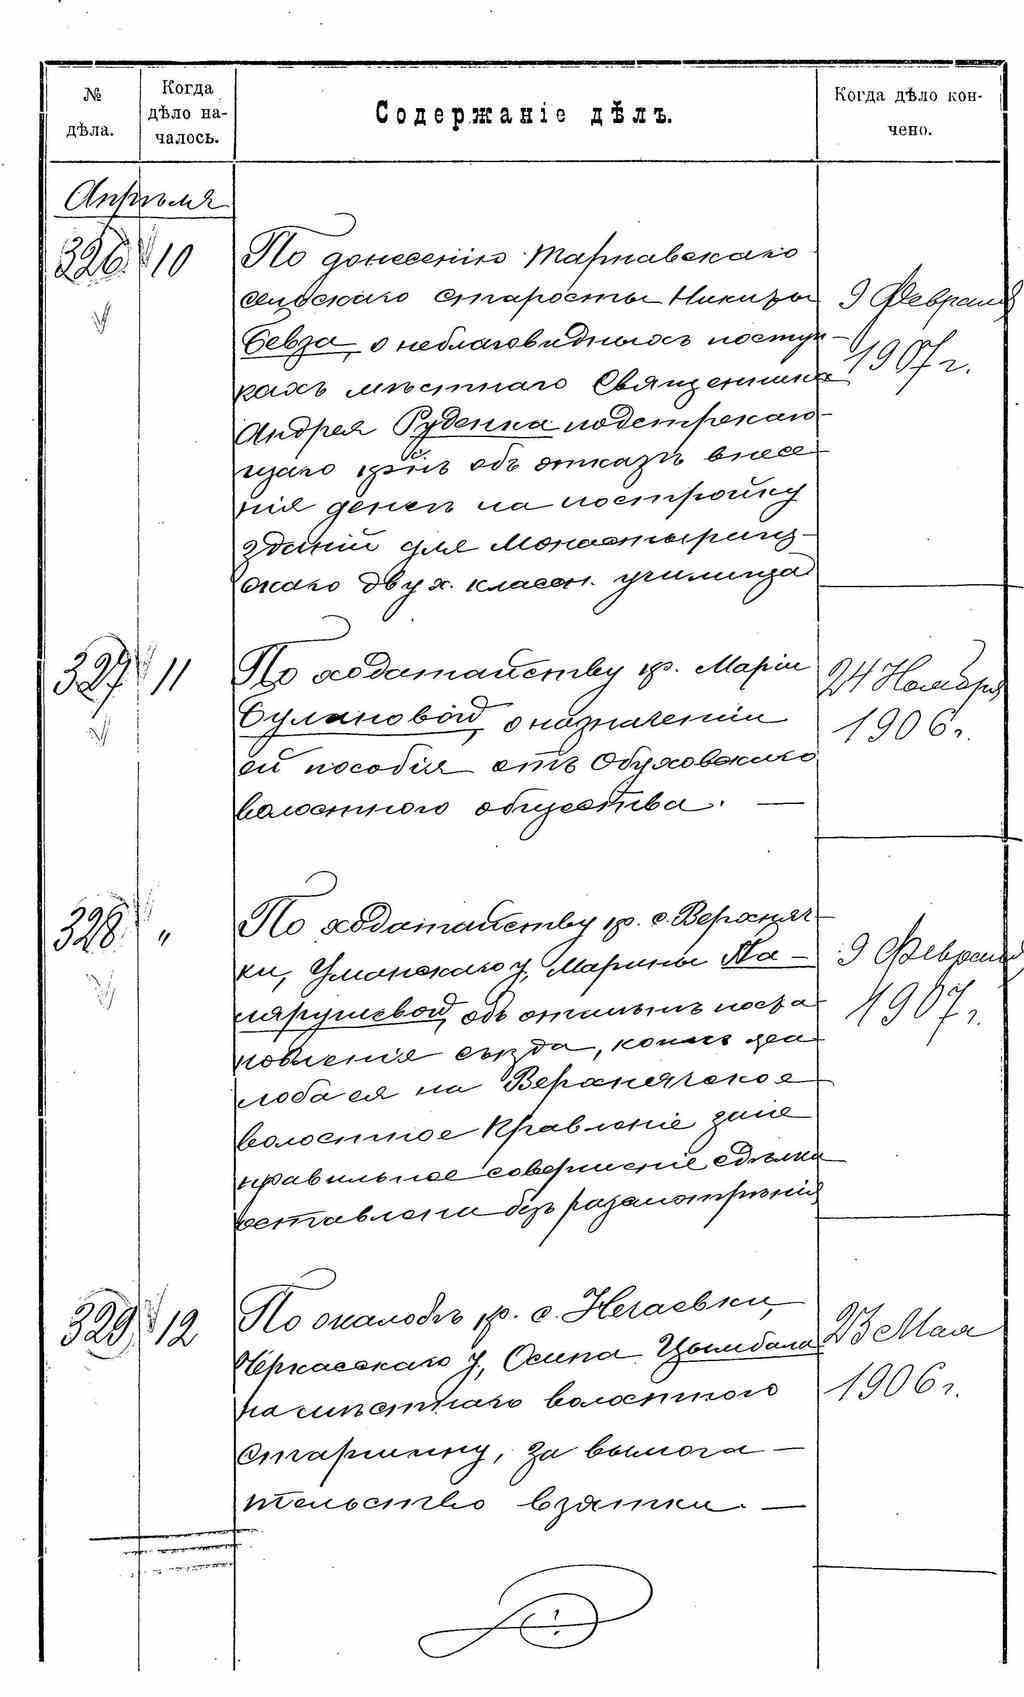 №
дѣла.
Когда
дѣло на-
чалось.
Содержаніе дѣлъ.
Когда дѣло кон-
чено.
Апрѣля
326 10
По донесенію Тарнавскаго
сельскаго старосты Никиты
Бевза, о неблаговидныхъ поступ-
кахъ мѣстнаго Священника
Андрея Руденка подстрекаю-
щаго кр-нъ объ отказѣ внесе-
нія денегъ на постройку
зданій для Монастырищ-
скаго двух. классн. училища
9 Февраля
1907 г.
327 11
По ходатайству кр. Маріи
Булановой, о назначеніи
ей пособія отъ Обуховскаго
волостного общества. —
24 Ноября
1906 г.
328 "
По ходатайству кр. с. Верхняч-
ки, Уманскаго у, Марины Па-
лярушевой, объ отмѣнѣ поста-
новленія съѣзда, коимъ жа-
лоба ея на Верхнячское
волостное Правленіе за не
правильное совершеніе сдѣлки
оставлена безъ разсмотрѣнія
9 Февраля
1907 г.
329 12
По жалобѣ кр. с. Нечаевки,
Черкасскаго у, Осипа Цымбала
на мѣстнаго волостного
Старшину, за вымога-
тельство взятки. —
23 Мая
1906 г.